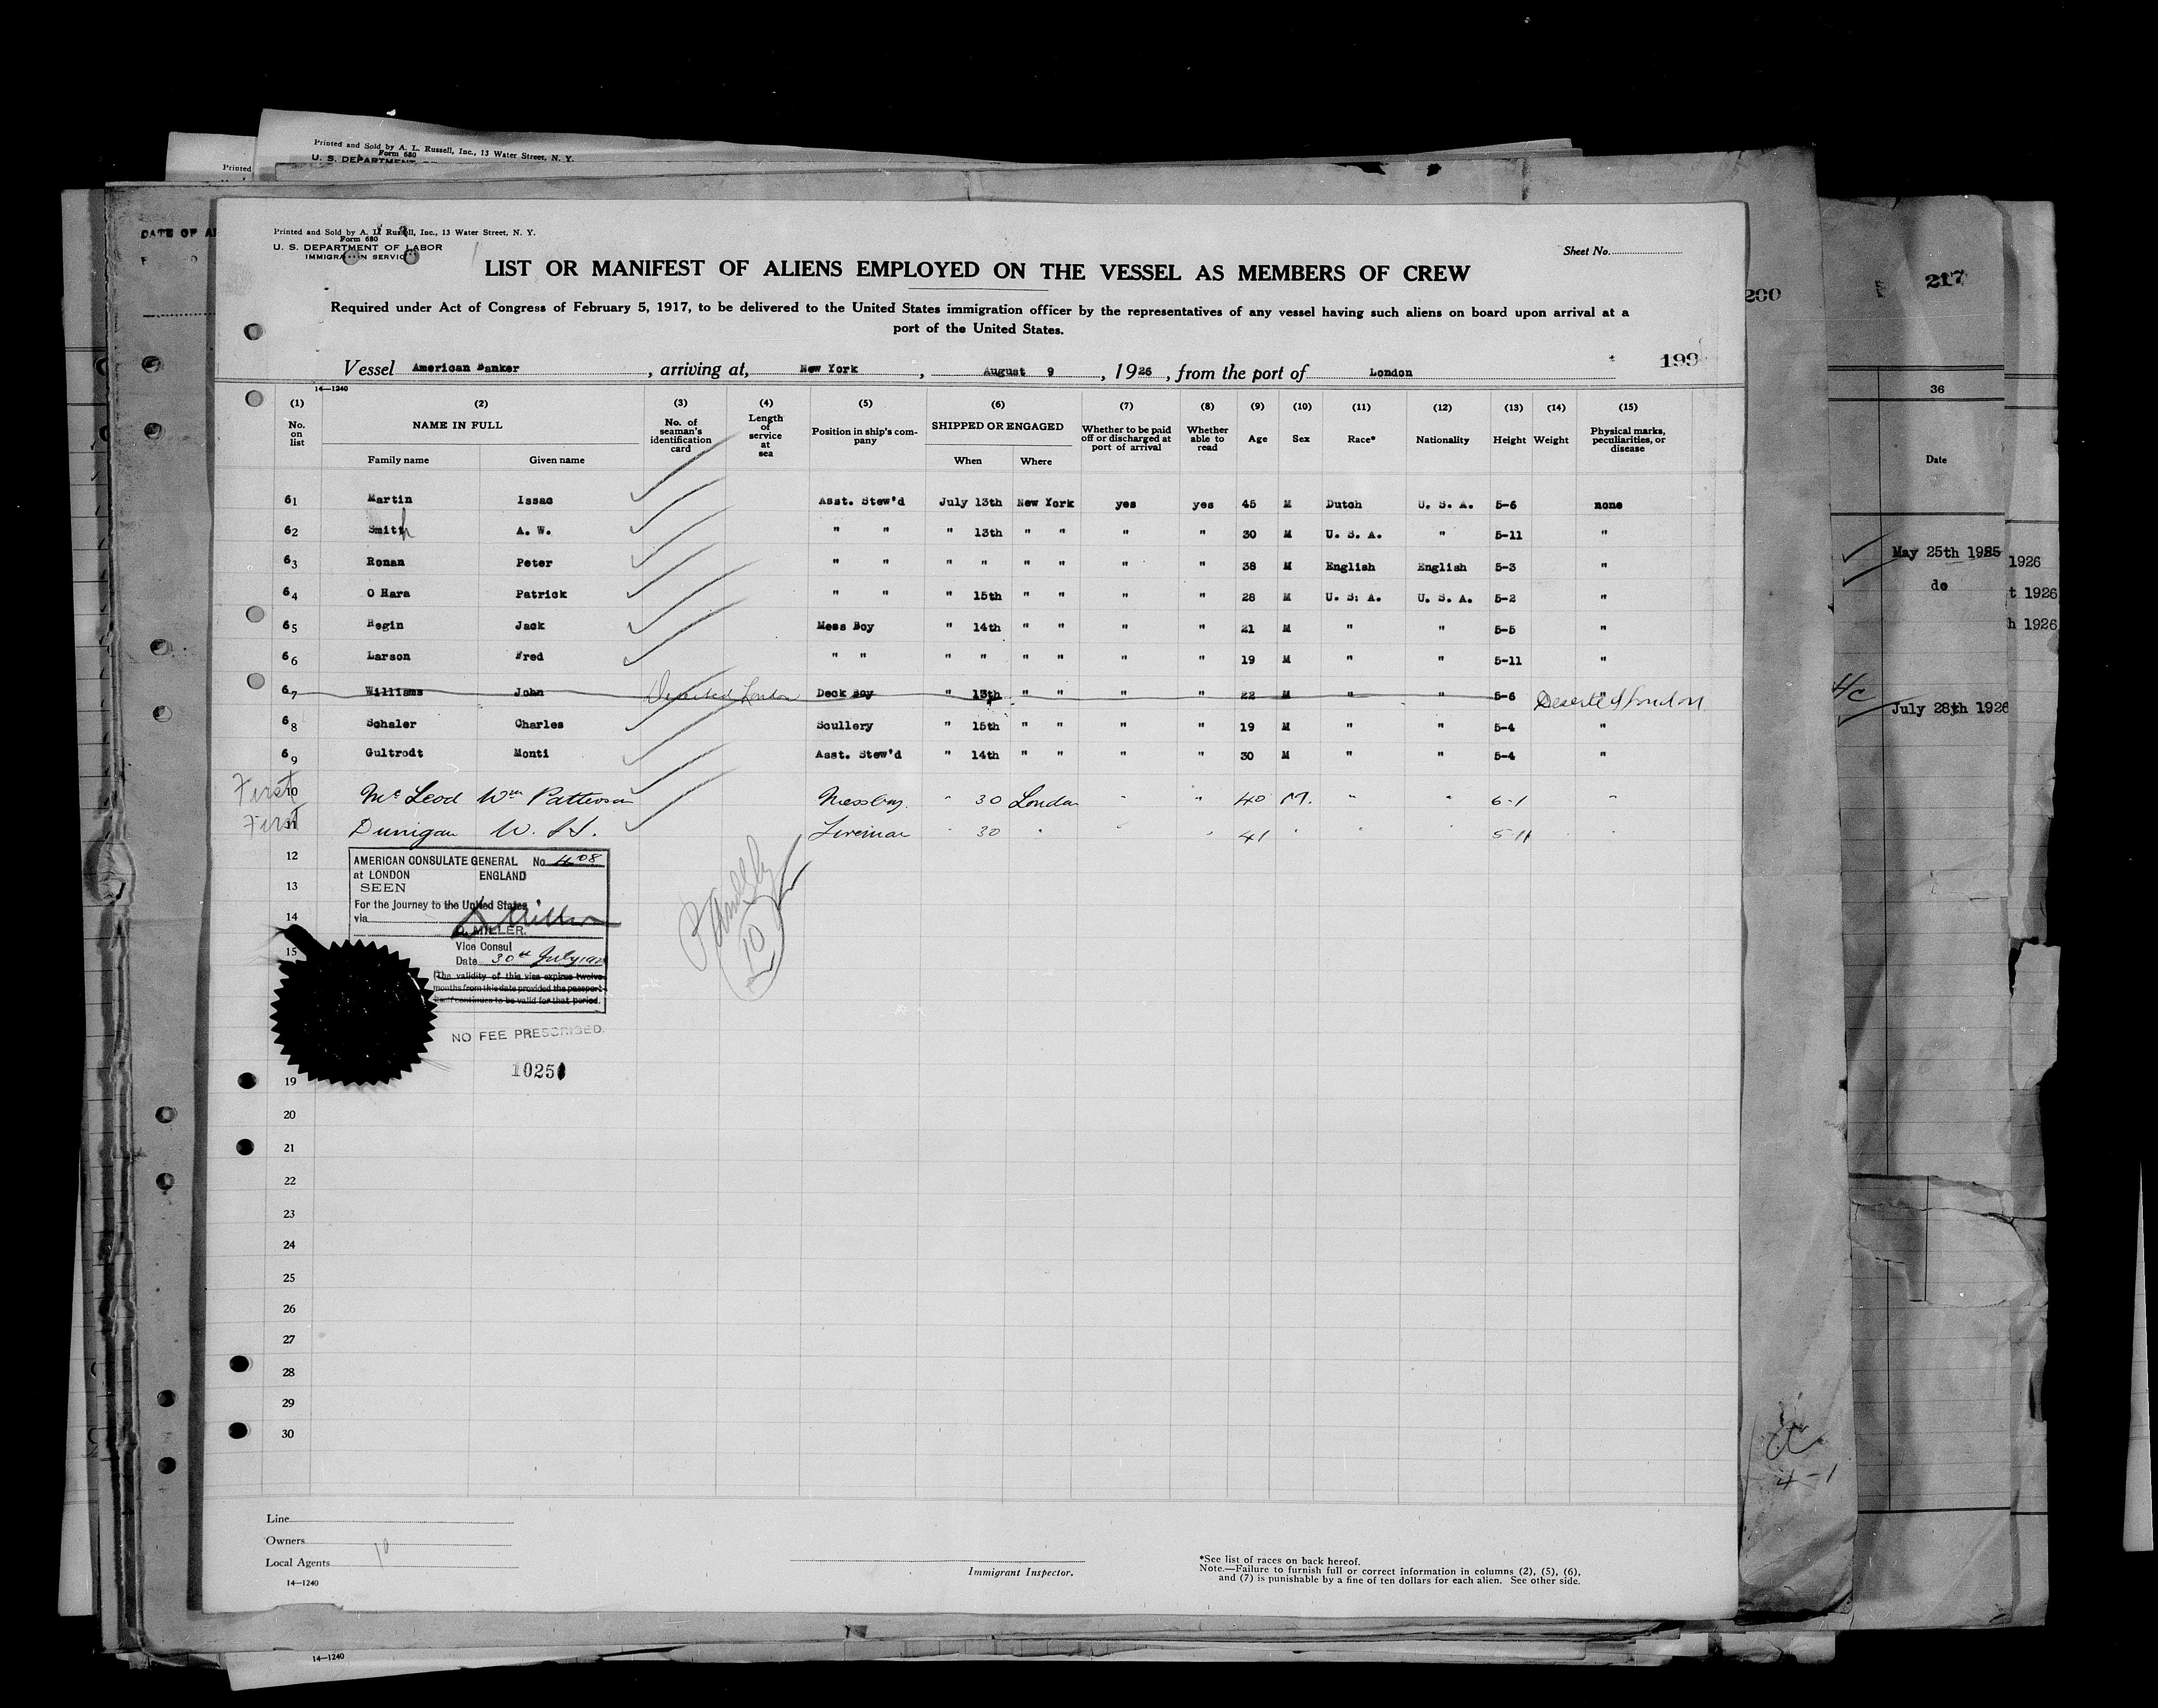 Printed and Sold by A. L. Russell, Inc., 13 Water Street, N. Y.
Form 680
U. S. DEPARTMENT
Printed
DATE OF
Printed and Sold by A. L. Russell, Inc., 13 Water Street, N. Y.
Form 680
U. S. DEPARTMENT OF LABOR
IMMIGRATION SERVICE
Sheet No.
LIST OR MANIFEST OF ALIENS EMPLOYED ON THE VESSEL AS MEMBERS OF CREW
Required under Act of Congress of February 5, 1917, to be delivered to the United States immigration officer by the representatives of any vessel having such aliens on board upon arrival at a
port of the United States.
199
Vessel American Banker, arriving at, New York, August 9, 1926, from the port of London
14—1240
(1) (2) (3) (4) (5) (6) (7) (8) (9) (10) (11) (12) (13) (14) (15)
No. on list NAME IN FULL No. of seaman's identification card Length of service at sea Position in ship's company SHIPPED OR ENGAGED Whether to be paid off or discharged at port of arrival Whether able to read Age Sex Race* Nationality Height Weight Physical marks, peculiarities, or disease
Family name Given name When Where
61 Martin Issac Asst. Stew'd July 13th New York yes yes 45 M Dutch U. S. A. 5-6 none
62 Smith A. W. " " " 13th " " " " 30 M U. S. A. " 5-11 "
63 Ronan Peter " " " " " " " " 38 M English English 5-3 "
64 O Hara Patrick " " " 15th " " " " 28 M U. S. A. U. S. A. 5-2 "
65 Regin Jack Mess Boy " 14th " " " " 21 M " " 5-5 "
66 Larson Fred " " " " " " " " 19 M " " 5-11 "
67 Williams John Deserted London Deck Boy " 13th " " " " 22 M " " 5-6 " Deserted London
68 Schaler Charles Scullery " 15th " " " " 19 M " " 5-4 "
69 Gultrodt Monti Asst. Stew'd " 14th " " " " 30 M " " 5-4 "
First 10 McLeod Wm Patterson Messboy. " 30 London " " 40 M. " " 6-1 "
First 11 Dunigan W. Fireman " 30 " " " 41 " " " 5-11 " "
12
13
14
15
AMERICAN CONSULATE GENERAL No. 408
at LONDON ENGLAND
SEEN
For the Journey to the United States
via
MILLER.
Vice Consul
Date 30th July 192
The validity of this visa expires twelve
months from this date provided the passport
itself continues to be valid for that period.
NO FEE PRESCRIBED.
10251
10
19
20
21
22
23
24
25
26
27
28
29
30
Line
Owners
Local Agents 10
14—1240
Immigrant Inspector.
*See list of races on back hereof.
Note.—Failure to furnish full or correct information in columns (2), (5), (6),
and (7) is punishable by a fine of ten dollars for each alien. See other side.
14—1240
200
4-1
217
36
Date
May 25th 1925
do
July 28th 1926
1926
t 1926
h 1926